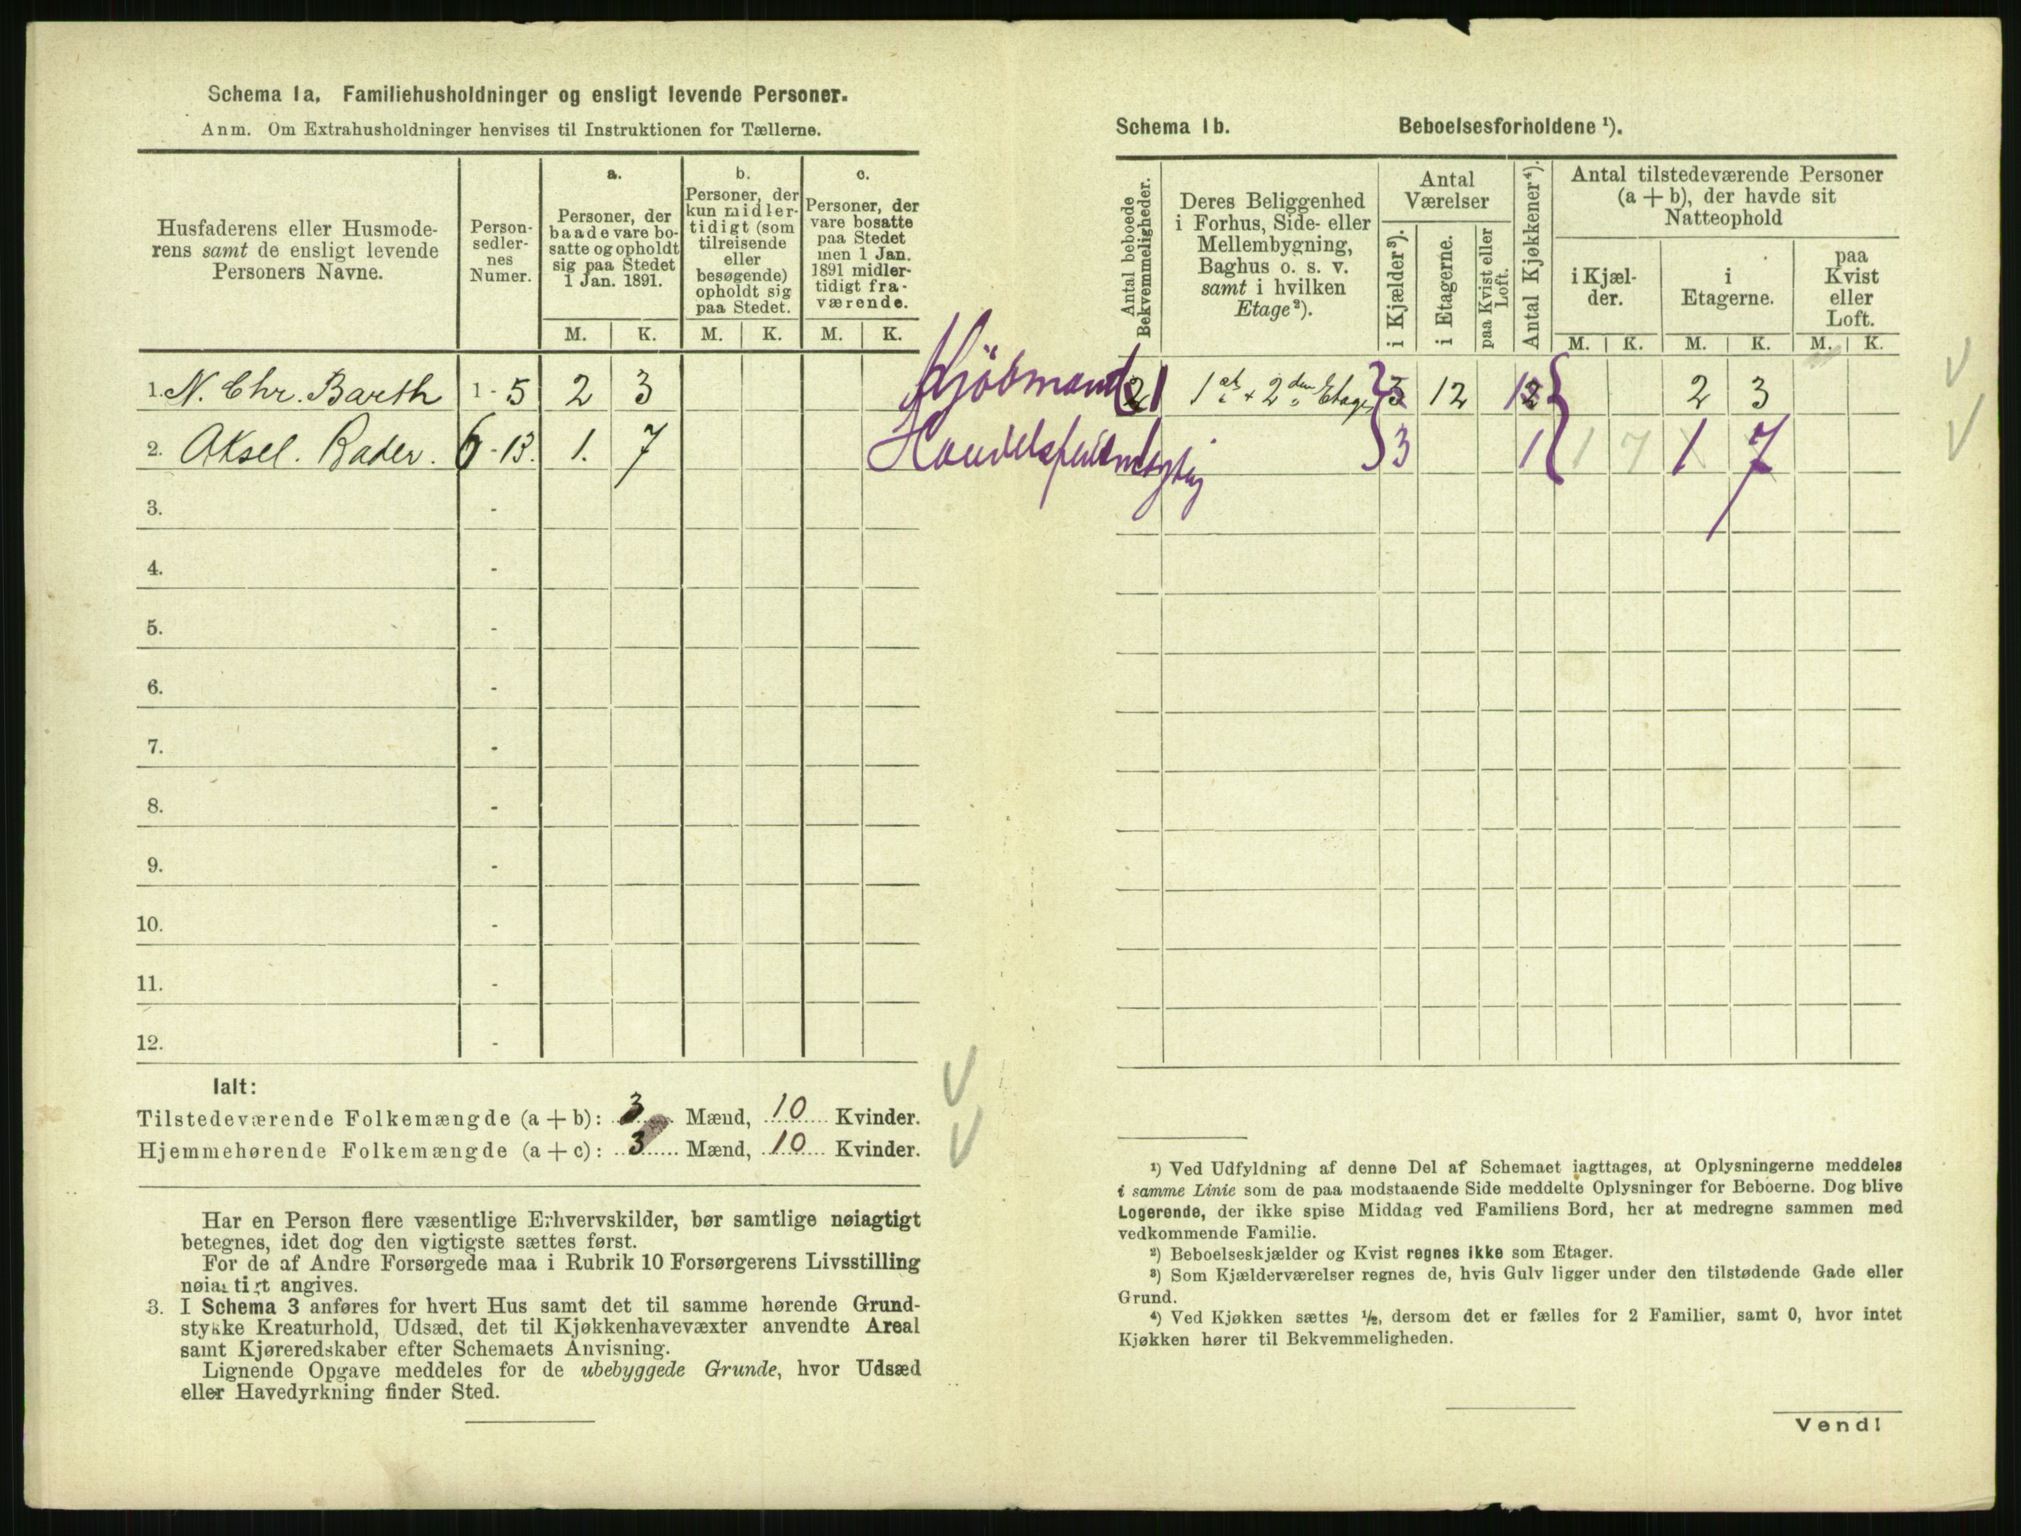 Schema 1a. Familiehusholdninger og ensligt levende Personer.
Anm. Om Extrahusholdninger henvises til Instruktionen for Tællerne.
Husfaderens eller Husmode-
rens samt de ensligt levende
Personers Navne.
Person-
sedler-
nes
Numer.
a.
Personer, der
baade vare bo-
satte og opholdt
sig paa Stedet
1 Jan. 1891.
b.
Personer, der
kun midler-
tidigt (som
tilreisende
eller
besøgende)
opholdt sig
paa Stedet.
c.
Personer, der
vare bosatte
paa Stedet
men 1 Jan.
1891 midler-
tidigt fra-
værende.
M. K. M. K. M. K.
1. N. Chr. Barth 1 - 5 2 3 Kjøbmand
2. Aksel. Bader. 6 - 13. 1. 7 Handelsfuldmægtig
3. -
4. -
5. -
6. -
7. -
8. -
9. -
10. -
11. -
12. -
Ialt:
Tilstedeværende Folkemængde (a + b): 3 Mænd, 10 Kvinder.
Hjemmehørende Folkemængde (a + c): 3 Mænd, 10 Kvinder.
Har en Person flere væsentlige Erhvervskilder, bør samtlige nøiagtigt
betegnes, idet dog den vigtigste sættes først.
For de af Andre Forsørgede maa i Rubrik 10 Forsørgerens Livsstilling
nøiagtigt angives.
3. I Schema 3 anføres for hvert Hus samt det til samme hørende Grund-
stykke Kreaturhold, Udsæd, det til Kjøkkenhavevæxter anvendte Areal
samt Kjøreredskaber efter Schemaets Anvisning.
Lignende Opgave meddeles for de ubebyggede Grunde, hvor Udsæd
eller Havedyrkning finder Sted.
Schema 1b. Beboelsesforholdene ¹).
Antal beboede
Bekvemmeligheder.
Deres Beliggenhed
i Forhus, Side- eller
Mellembygning,
Baghus o. s. v.
samt i hvilken
Etage ²).
Antal
Værelser
i Kjælder ³).
i Etagerne.
paa Kvist eller
Loft.
Antal Kjøkkener ⁴).
Antal tilstedeværende Personer
(a + b), der havde sit
Natteophold
i Kjæl-
der.
i
Etagerne.
paa
Kvist
eller
Loft.
M. K. M. K. M. K.
2 1 1ste + 2den Etage 3 12 2 2 3
3 1 1 7 1 7
¹) Ved Udfyldning af denne Del af Schemaet iagttages, at Oplysningerne meddeles
i samme Linie som de paa modstaaende Side meddelte Oplysninger for Beboerne. Dog blive
Logerende, der ikke spise Middag ved Familiens Bord, her at medregne sammen med
vedkommende Familie.
²) Beboelseskjælder og Kvist regnes ikke som Etager.
³) Som Kjælderværelser regnes de, hvis Gulv ligger under den tilstødende Gade eller
Grund.
⁴) Ved Kjøkken sættes ½, dersom det er fælles for 2 Familier, samt 0, hvor intet
Kjøkken hører til Bekvemmeligheden.
Vend!